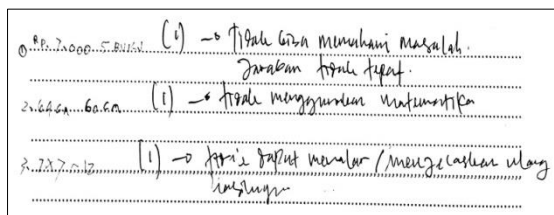 ① Rp. 7.000 5 BUKU (1) → tidak bisa memahami masalah.
Jawaban tidak tepat.
2. 64 cm 60 cm (1) → tidak menggunakan matematika
3. 7x7-12 (1) → dapat menalar / menjelaskan ulang